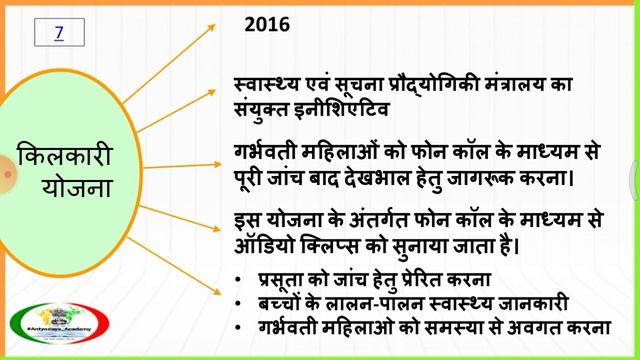 7
2016
किलकारी
योजना
स्वास्थ्य एवं सूचना प्रौद्योगिकी मंत्रालय का
संयुक्त इनीशिएटिव
गर्भवती महिलाओं को फोन कॉल के माध्यम से
पूरी जांच बाद देखभाल हेतु जागरूक करना।
इस योजना के अंतर्गत फोन कॉल के माध्यम से
ऑडियो क्लिप्स को सुनाया जाता है।
• प्रसूता को जांच हेतु प्रेरित करना
• बच्चों के लालन-पालन स्वास्थ्य जानकारी
• गर्भवती महिलाओ को समस्या से अवगत करना
#Antyodaya_Academy